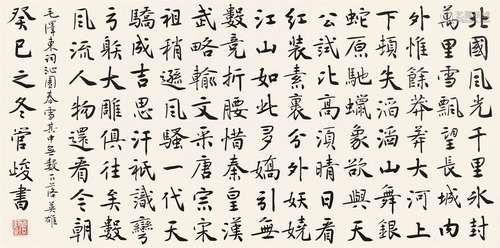 北國風光千里冰封
萬里雪飄望長城内
外惟餘莽莽大河上
下頓失滔滔山舞銀
蛇原馳蠟象欲與天
公試比高須晴日看
紅裝素裹分外妖嬈
江山如此多嬌引無
數競折腰惜秦皇漢
武略輸文采唐宗宋
祖稍遜風騷一代天
驕成吉思汗祇識彎
弓射大雕俱往矣數
風流人物還看今朝
毛澤東詞沁園春雪其中無數下落英雄
癸巳之冬官峻書